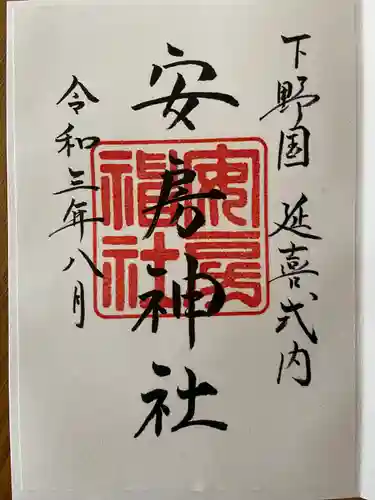 下野国 延喜式内
安房神社
令和三年八月
安房
神社